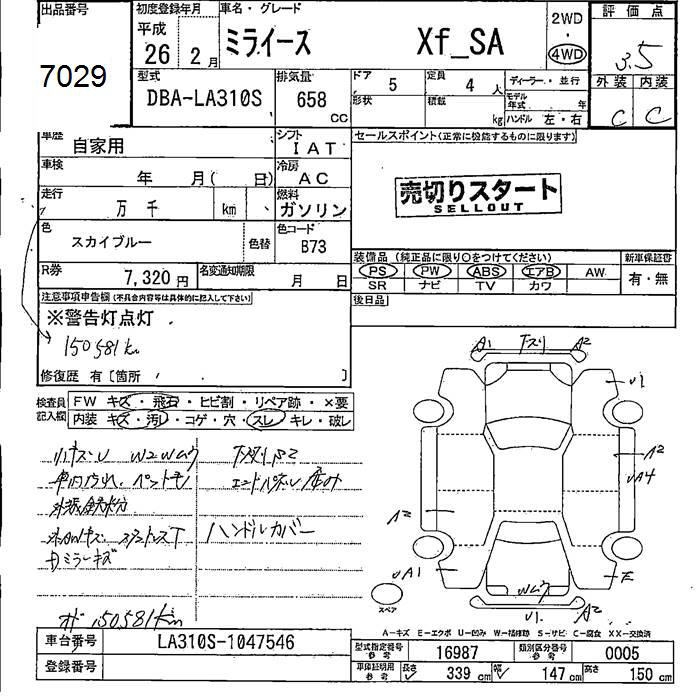 出品番号
7029
初度登録年月
平成
26年 2月
車名・グレード
ミライース Xf_SA
2WD
・
4WD
評価点
3.5
型式
DBA-LA310S
排気量
658 CC
ドア 5
定員 4人
形状
積載 kg
ディーラー・並行
モデル年式 年
ハンドル 左・右
外装 内装
C C
車歴
自家用
シフト
IAT
セールスポイント(正常に機能するものに限ります)
車検
年 月( 日)
冷房
AC
売切りスタート
SELLOUT
走行
万 千 km
燃料
ガソリン
色
スカイブルー
色替
色コード
B73
R券
7,320円
名変通知期限
月 日
装備品(純正品に限り○をつけてください)
PS PW ABS エアB AW
SR ナビ TV カワ
新車保証書
有・無
後日品
注意事項申告欄(不具合内容等は具体的に記入して下さい)
※警告灯点灯
150581km
修復歴 有[箇所 ]
検査員記入欄
FW キズ・飛石・ヒビ割・リペア跡・×要
内装 キズ・汚レ・コゲ・穴・スレ・キレ・破レ
ハンドルカバー
ミラーキズ
150581km
A1 下スリ A2
U1
A2
UA4
A2
UA1
E
U1 A2
スペア
A-キズ E-エクボ U-凹み W-補修跡 S-サビ C-腐食 XX-交換済
車台番号
LA310S-1047546
登録番号
型式指定番号 参考
16987
類別区分番号 参考
0005
車庫証明用 参考
長さ 339 cm 幅 147 cm 高さ 150 cm